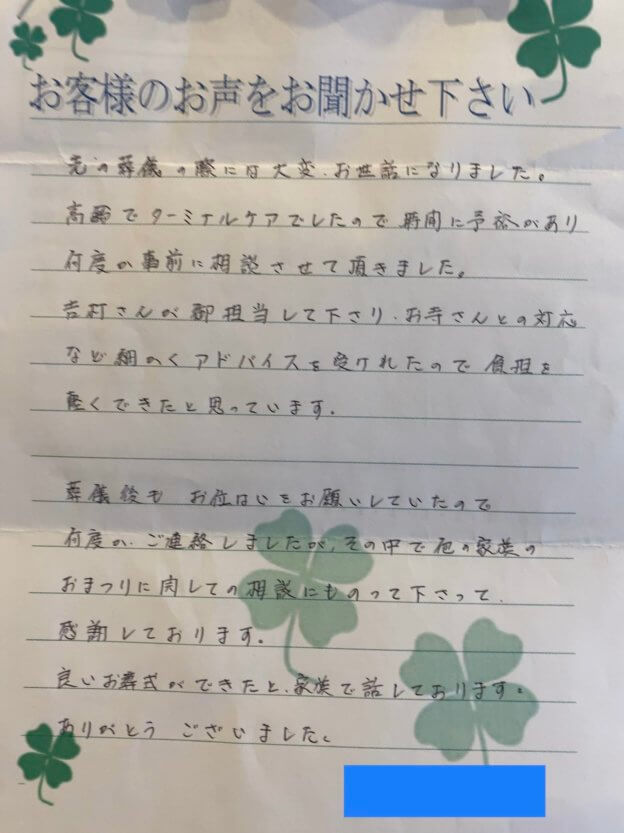 お客様のお声をお聞かせ下さい
先の葬儀の際には大変、お世話になりました。
高齢でターミナルケアでしたので時間に予裕があり
何度か事前に相談させて頂きました。
吉村さんが御担当して下さり、お寺さんとの対応
など細かくアドバイスを受けれたので負担を
軽くできたと思っています。
葬儀後も お位はいをお願いしていたので
何度か、ご連絡しましたが、その中で他の家族の
おまつりに関しての相談にものって下さって、
感謝しております。
良いお葬式ができたと、家族で話しております。
ありがとう ございました。